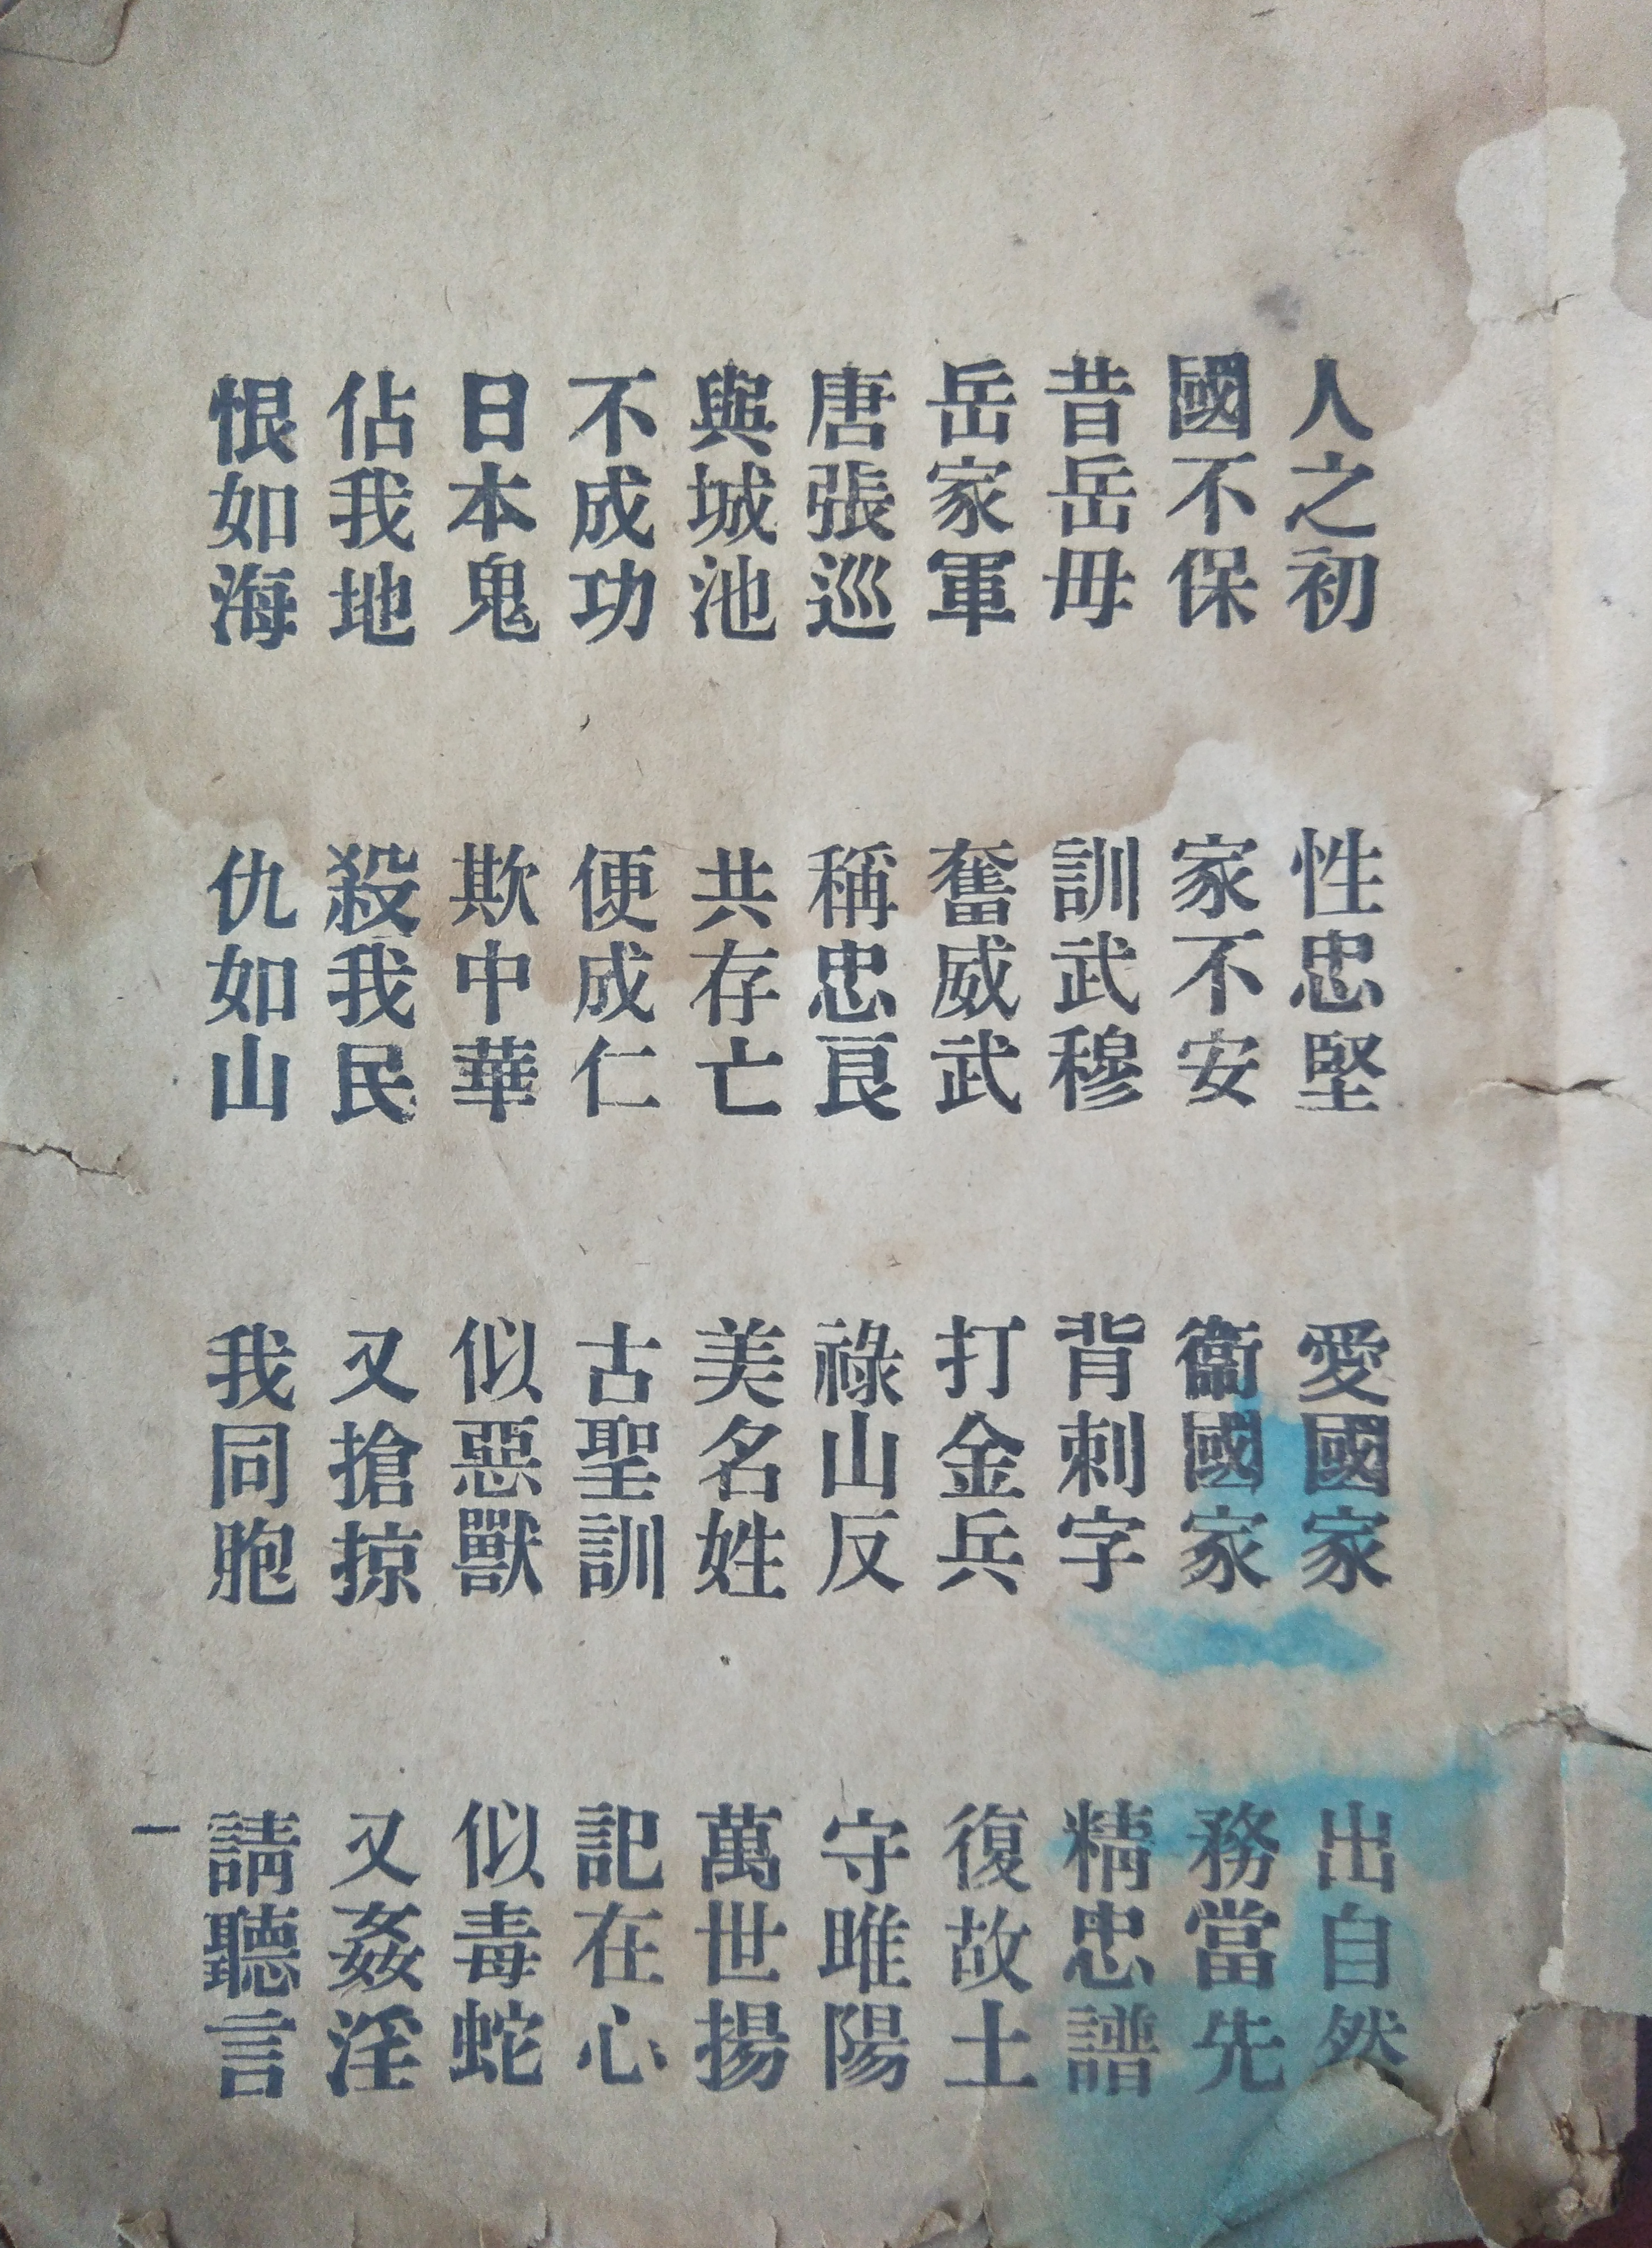 人之初 性忠堅 愛國家 出自然
國不保 家不安 衞國家 務當先
昔岳母 訓武穆 背刺字 精忠譜
岳家軍 奮威武 打金兵 復故土
唐張巡 稱忠良 祿山反 守雎陽
與城池 共存亡 美名姓 萬世揚
不成功 便成仁 古聖訓 記在心
日本鬼 欺中華 似惡獸 似毒蛇
佔我地 殺我民 又搶掠 又姦淫
恨如海 仇如山 我同胞 請聽言
一